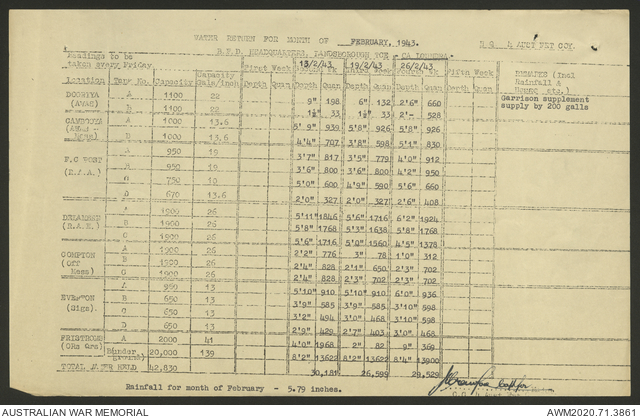 WATER RETURN FOR MONTH OF FEBRUARY, 1943.
R.F.D. HEADQUARTERS, LANDSBOROUGH HQ 4 AUST PET COY.
Readings to be taken every Friday 13/2/43 19/2/43 26/2/43
First Week Second Wk Third Week Fourth Wk Fifth Week REMARKS (Incl Rainfall &
Location Tank No. Capacity Capacity Gals/inch Depth Quan Depth Quan Depth Quan Depth Quan Depth Quan etc.)
A 1100 22 9" 198 6" 132 2'6" 660 Garrison supplement
(AWAS) B 1100 22 1½" 33 1½" 33 2'- 528 supply by 200 galls
A 1000 13.6 5' 9" 939 5'8" 926 5'8" 926
B 1000 13.6 4'4" 707 3'8" 598 5'1" 830
F.C POST A 950 19 3'7" 817 3'5" 779 4'0" 912
(R.A.A.) B 950 19 3'6" 800 3'6" 800 4'2" 950
C 750 10 5'0" 600 4'9" 590 5'6" 660
D 670 13.6 2'0" 327 2'0" 327 2'6" 408
DELAMBER A 1900 26 5'11" 1846 5'6" 1716 6'2" 1924
(R.A.E.) B 1900 26 5'8" 1768 5'3" 1638 5'8" 1768
C 1900 26 5'6" 1716 5'0" 1560 4'5" 1378
COMPTON A 1900 26 2'2" 776 3" 78 1'0" 312
(Off Mess) B 1900 26 2'4" 828 2'1" 650 2'3" 702
C 1900 26 2'4" 828 2'3" 702 2'3" 702
EVERTON A 950 13 5'10" 910 5'10" 910 6'0" 936
(Sigs) B 650 13 3'9" 585 3'9" 585 3'10" 598
C 650 13 3'2" 494 3'0" 468 3'10" 598
D 650 13 2'9" 429 2'7" 403 3'0" 468
A 2000 41 4'0" 1968 2" 82 9" 369
20,000 139 8'2" 13622 8'2" 13622 8'4" 13900
TOTAL WATER HELD 42,830 30,181 26,599 29,529
Rainfall for month of February - 5.79 inches.
AUSTRALIAN WAR MEMORIAL AWM2020.71.3861